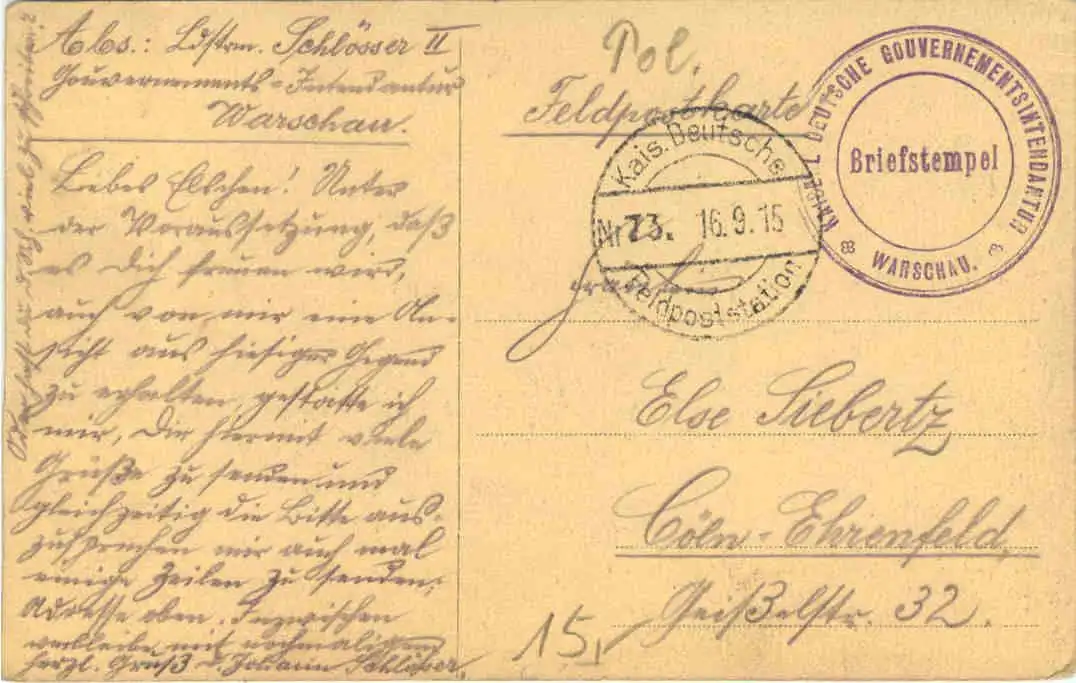 Abs.: Ldstrm. Schlösser II
Gouvernements-Intendantur
Warschau.
Liebes Elschen! Unter
der Voraussetzung, daß
es Dich freuen wird,
auch von mir eine An-
sicht aus hiesiger Gegend
zu erhalten, gestatte ich
mir, Dir hiermit viele
Grüße zu senden und
gleichzeitig die Bitte aus-
zusprechen mir auch mal
einige Zeilen zu senden.
Adresse oben. Inzwischen
verbleibe mit nochmaligem
herzl. Gruß Johann Schlösser.
Oder hast du viel zu schreiben?
Pol.
Feldpostkarte
KAISERL. DEUTSCHE GOUVERNEMENTSINTENDANTUR
Briefstempel
WARSCHAU.
Kais. Deutsche
Nr 73. 16.9.15
Feldpoststation
Fräulein
Else Siebertz
Cöln-Ehrenfeld,
Geißelstr. 32.
15,